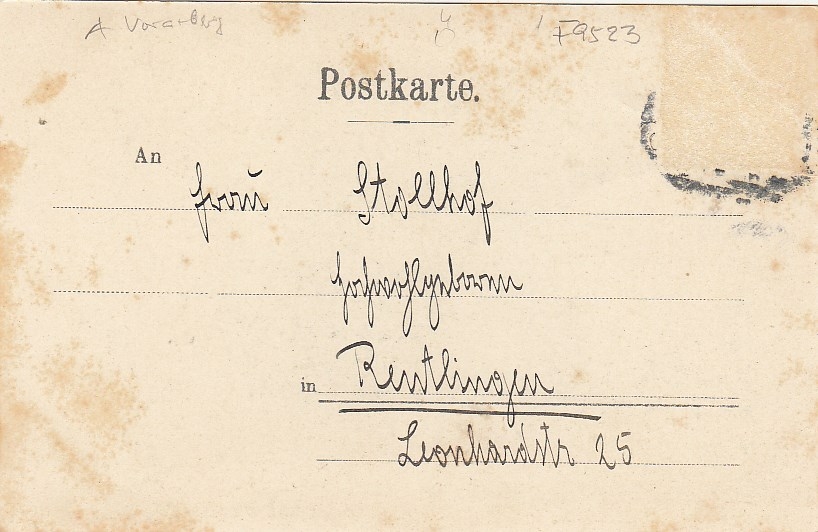 A Vorarlberg F9523
Postkarte.
An
Frau Stollhof
Hochwohlgeboren
in Reutlingen
Leonhardstr 25